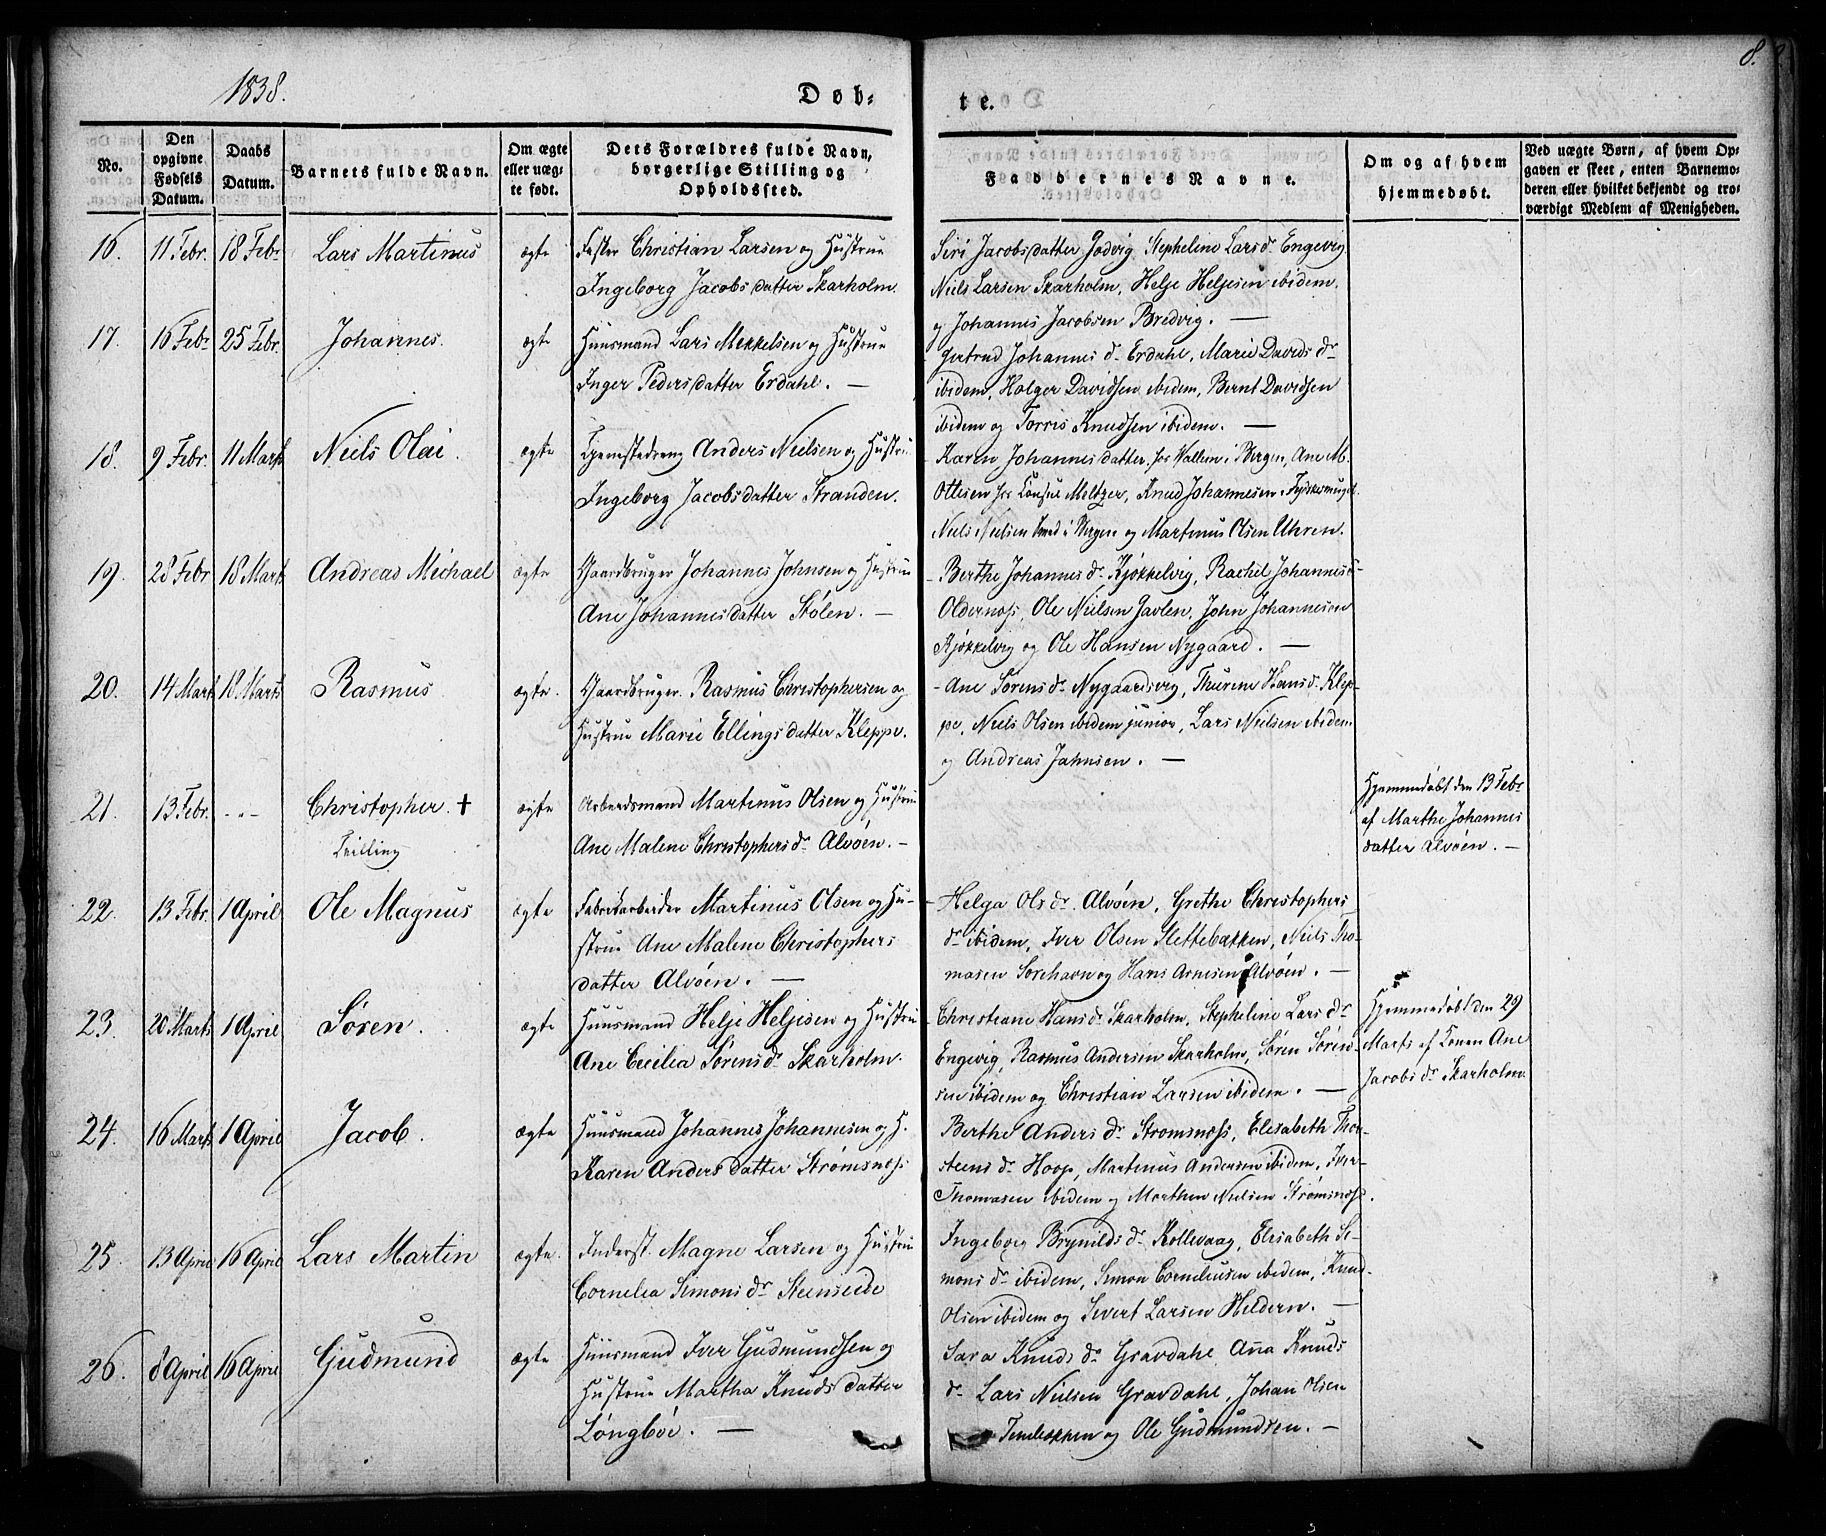 1838.
Døb-
te.
8.
No.
Den opgivne Fødsels Datum.
Daabs Datum.
Barnets fulde Navn.
Om ægte eller uæg-te født.
Dets Forældres fulde Navn, borgerlige Stilling og Opholdssted.
Faddernes Navne.
Om og af hvem hjemmedøbt.
Ved uægte Børn, af hvem Op-gaven er skeet, enten Barnemo-deren eller hvilket bekjendt og tro-værdigt Medlem af Menigheden.
16. 11 Febr. 18 Febr. Lars Martinus ægte
Christian Larsen og Hustrue
Ingeborg Jacobsdatter Skarholm.
Siri Jacobsdatter Godvig, Stepheline Larsdr Engevig,
Niels Larsen Skarholm, Helje Heljesen ibidem,
og Johannes Jacobsen Bredvig. —
17. 16 Febr 25 Febr. Johannes. ægte
Huusmand Lars Mekkelsen og Hustrue
Inger Pedersdatter Erdahl. —
Gertrud Johannesdr Erdahl, Marie Davidsdr
ibidem, Holger Davidsen ibidem, Bernt Davidsen
ibidem og Torris Knudsen ibidem. —
18. 9 Febr. 11 Marts Niels Olai. ægte
Tjenestedreng Anders Nielsen og Hustrue
Ingeborg Jacobsdatter Stranden.
Karen Johannesdatter, hos Wallem i Bergen, Ane M.
Ottesen hos Consul Meltzer, Knud Johannesen
Niels Nielsen Smed i Bergen og Martinus Olsen Uhren.
19. 28 Febr 18 Mart. Andreas Michael ægte
Gaardbruger Johannes Johnsen og Hustrue
Ane Johannesdatter Stølen. —
Berthe Johannesdr Kjøkkelvig, Rachel Johannesd-
Oldernæss, Ole Nielsen Gavlen, John Johannesen
Kjøkkelvig og Ole Hansen Nygaard. —
20. 14 Mart. 18 Marts Rasmus ægte.
Gaardbruger Rasmus Christophersen og
Hustrue Marie Ellingsdatter Kleppe.
Ane Sørensdr Nygaardsvig, Thurine Hansd. Klep-
pe, Niels Olsen ibidem junior, Lars Nielsen ibidem
og Andreas Jahnsen. —
21. 13 Febr. -"- Christopher. + ægte
Tvilling
Arbeidsmand Martinus Olsen og Hustrue
Ane Malene Christophersdr Alvøen. —
Hjemmedøbt den 13 Febr
af Marthe Johannes
datter Alvøen. —
22. 13 Febr. 1 April Ole Magnus ægte
Fabrikarbeider Martinus Olsen og Hu-
strue Ane Malene Christophers
datter Alvøen. —
Helga Olsdr Alvøen, Grethe Christophers
dr ibidem, Iver Olsen Slettebakken, Niels Tho-
masen Sørehavn og Hans Arnesen Alvøen. —
23. 20 Marts 1 April Søren. ægte
Huusmand Helje Heljesen og Hustrue
Ane Cecilia Sørensdr Skarholm.
Christiane Hansdr Skarholm, Stepheline Larsdr
Engevig, Rasmus Andersen Skarholm, Søren Søren-
sen ibidem og Christian Larsen ibidem. —
Hjemmedøbt den 29
Marts af Konen Ane
Jacobsdr Skarholm
24. 16 Marts 1 April Jacob. ægte
Huusmand Johannes Johannesen og H.
Karen Andersdatter Strømsnæss
Berthe Andersdr Strømsnæss, Elisabeth Thor-
steensdr Hoop, Martinus Andersen ibidem, Iver
Thomasen ibidem og Morthen Nielsen Strømsnæss.
25. 13 April 16 April Lars Martin ægte.
Inderst. Magne Larsen og Hustrue
Cornelia Simonsdr Steenseide
Ingeborg Brynildsdr Rollevaag, Elisabeth Si-
monsdr ibidem, Simon Corneliusen ibidem, Knud
Olsen ibidem og Sivert Larsen Heldern. —
26. 8 April 16 April Gudmund ægte
Huusmand Iver Gudmundsen og
Hustrue Martha Knudsdatter
Løngbøe. —
Sara Knudsdr Gravdahl, Anna Knuds
dr Lars Nielsen Gravdahl, Johan Olsen
og Ole Gudmundsen. —